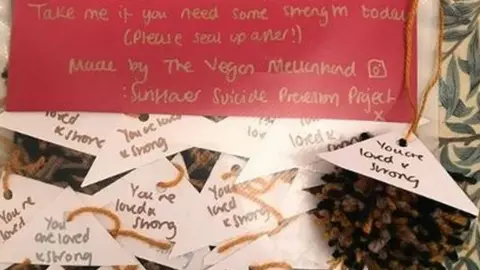 Take me if you need some strength today
(Please seal up after!)
Made by The Vegan
: Sunflower Suicide Prevention Project
x
loved
& strong
You're
loved
& strong
loved
& strong
You're
loved &
strong
You're
You are loved
& strong
You're
loved &
strong
You're
loved &
strong